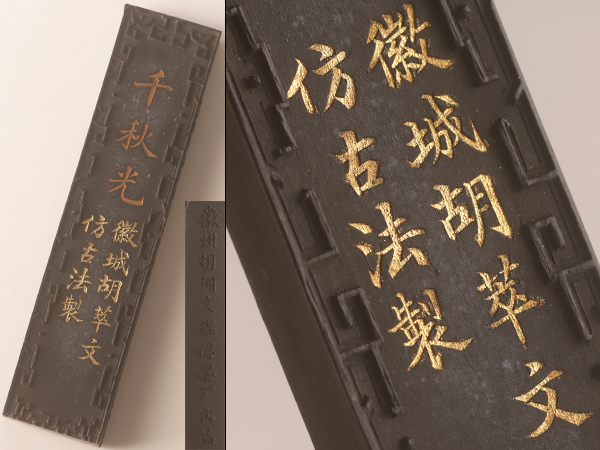 千秋光
徽城胡萃文
仿古法製
徽州胡開文
徽城胡萃文
仿古法製